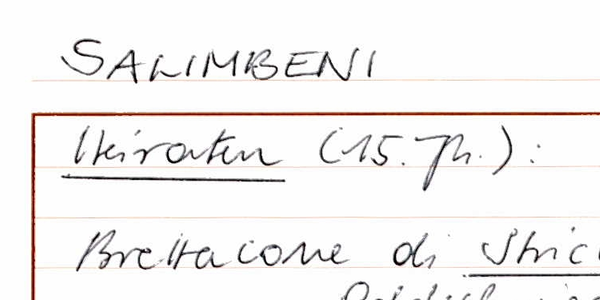 SALIMBENI
Heiraten (15. Jh.):
Brettacone di